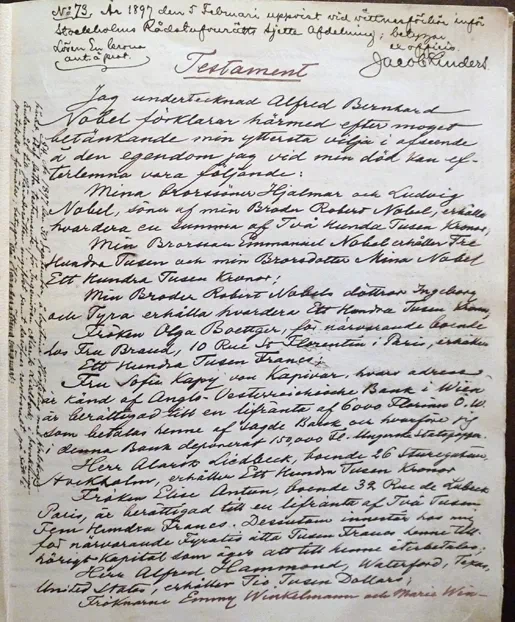 No 73. År 1897 den 5 Februari uppvist vid vittnesförhör inför
Stockholms Rådstufvurätts Sjette Afdelning; betygar
ex officio.
Testament
Jag undertecknad Alfred Bernhard
Nobel förklarar härmed efter moget
betänkande min yttersta vilja i afseende
å den egendom jag vid min död kan ef-
terlemna vara följande:
Mina brorssöner Hjalmar och Ludvig
Nobel, söner af min Broder Robert Nobel, erhålla
hvardera en summa af Två Hundra Tusen Kronor;
Min Brorsson Emmanuel Nobel erhåller Tre
Hundra Tusen och min Brorsdotter Mina Nobel
Ett Hundra Tusen Kronor;
Min Broder Robert Nobels döttrar Ingeborg
och Tyra erhålla hvardera Ett Hundra Tusen Kronor,
Fröken Olga Boettger, för närvarande boende
hos Fru Brand, 10 Rue St Florentin i Paris, erhåller
Ett Hundra Tusen Francs;
Fru Sofie Kapy von Kapivar, hvars adress
är känd af Anglo-Oesterreichische Bank i Wien
är berättigad till en lifränta af 6000 Florins Ö.W.
som betalas henne af sagde Bank och hvarföre jag
i denna Bank deponerat 150,000 Fl. i Ungerska Statspapper.
Herr Alarik Liedbeck, boende 26 Sturegatan,
Stockholm, erhåller Ett Hundra Tusen Kronor
Fröken Elise Antun, boende 32 Rue de Lubeck
Paris, är berättigad till en lifränta af Två Tusen
Fem Hundra Francs. Desutom innestår hos mig
för närvarande Fyratio åtta Tusen Francs henne till-
hörigt kapital som äger att till henne återbetalas;
Herr Alfred Hammond, Waterford, Texas,
United States, erhåller Tio Tusen Dollars;
Fröknarne Emmy Winkelmann och Marie Win-